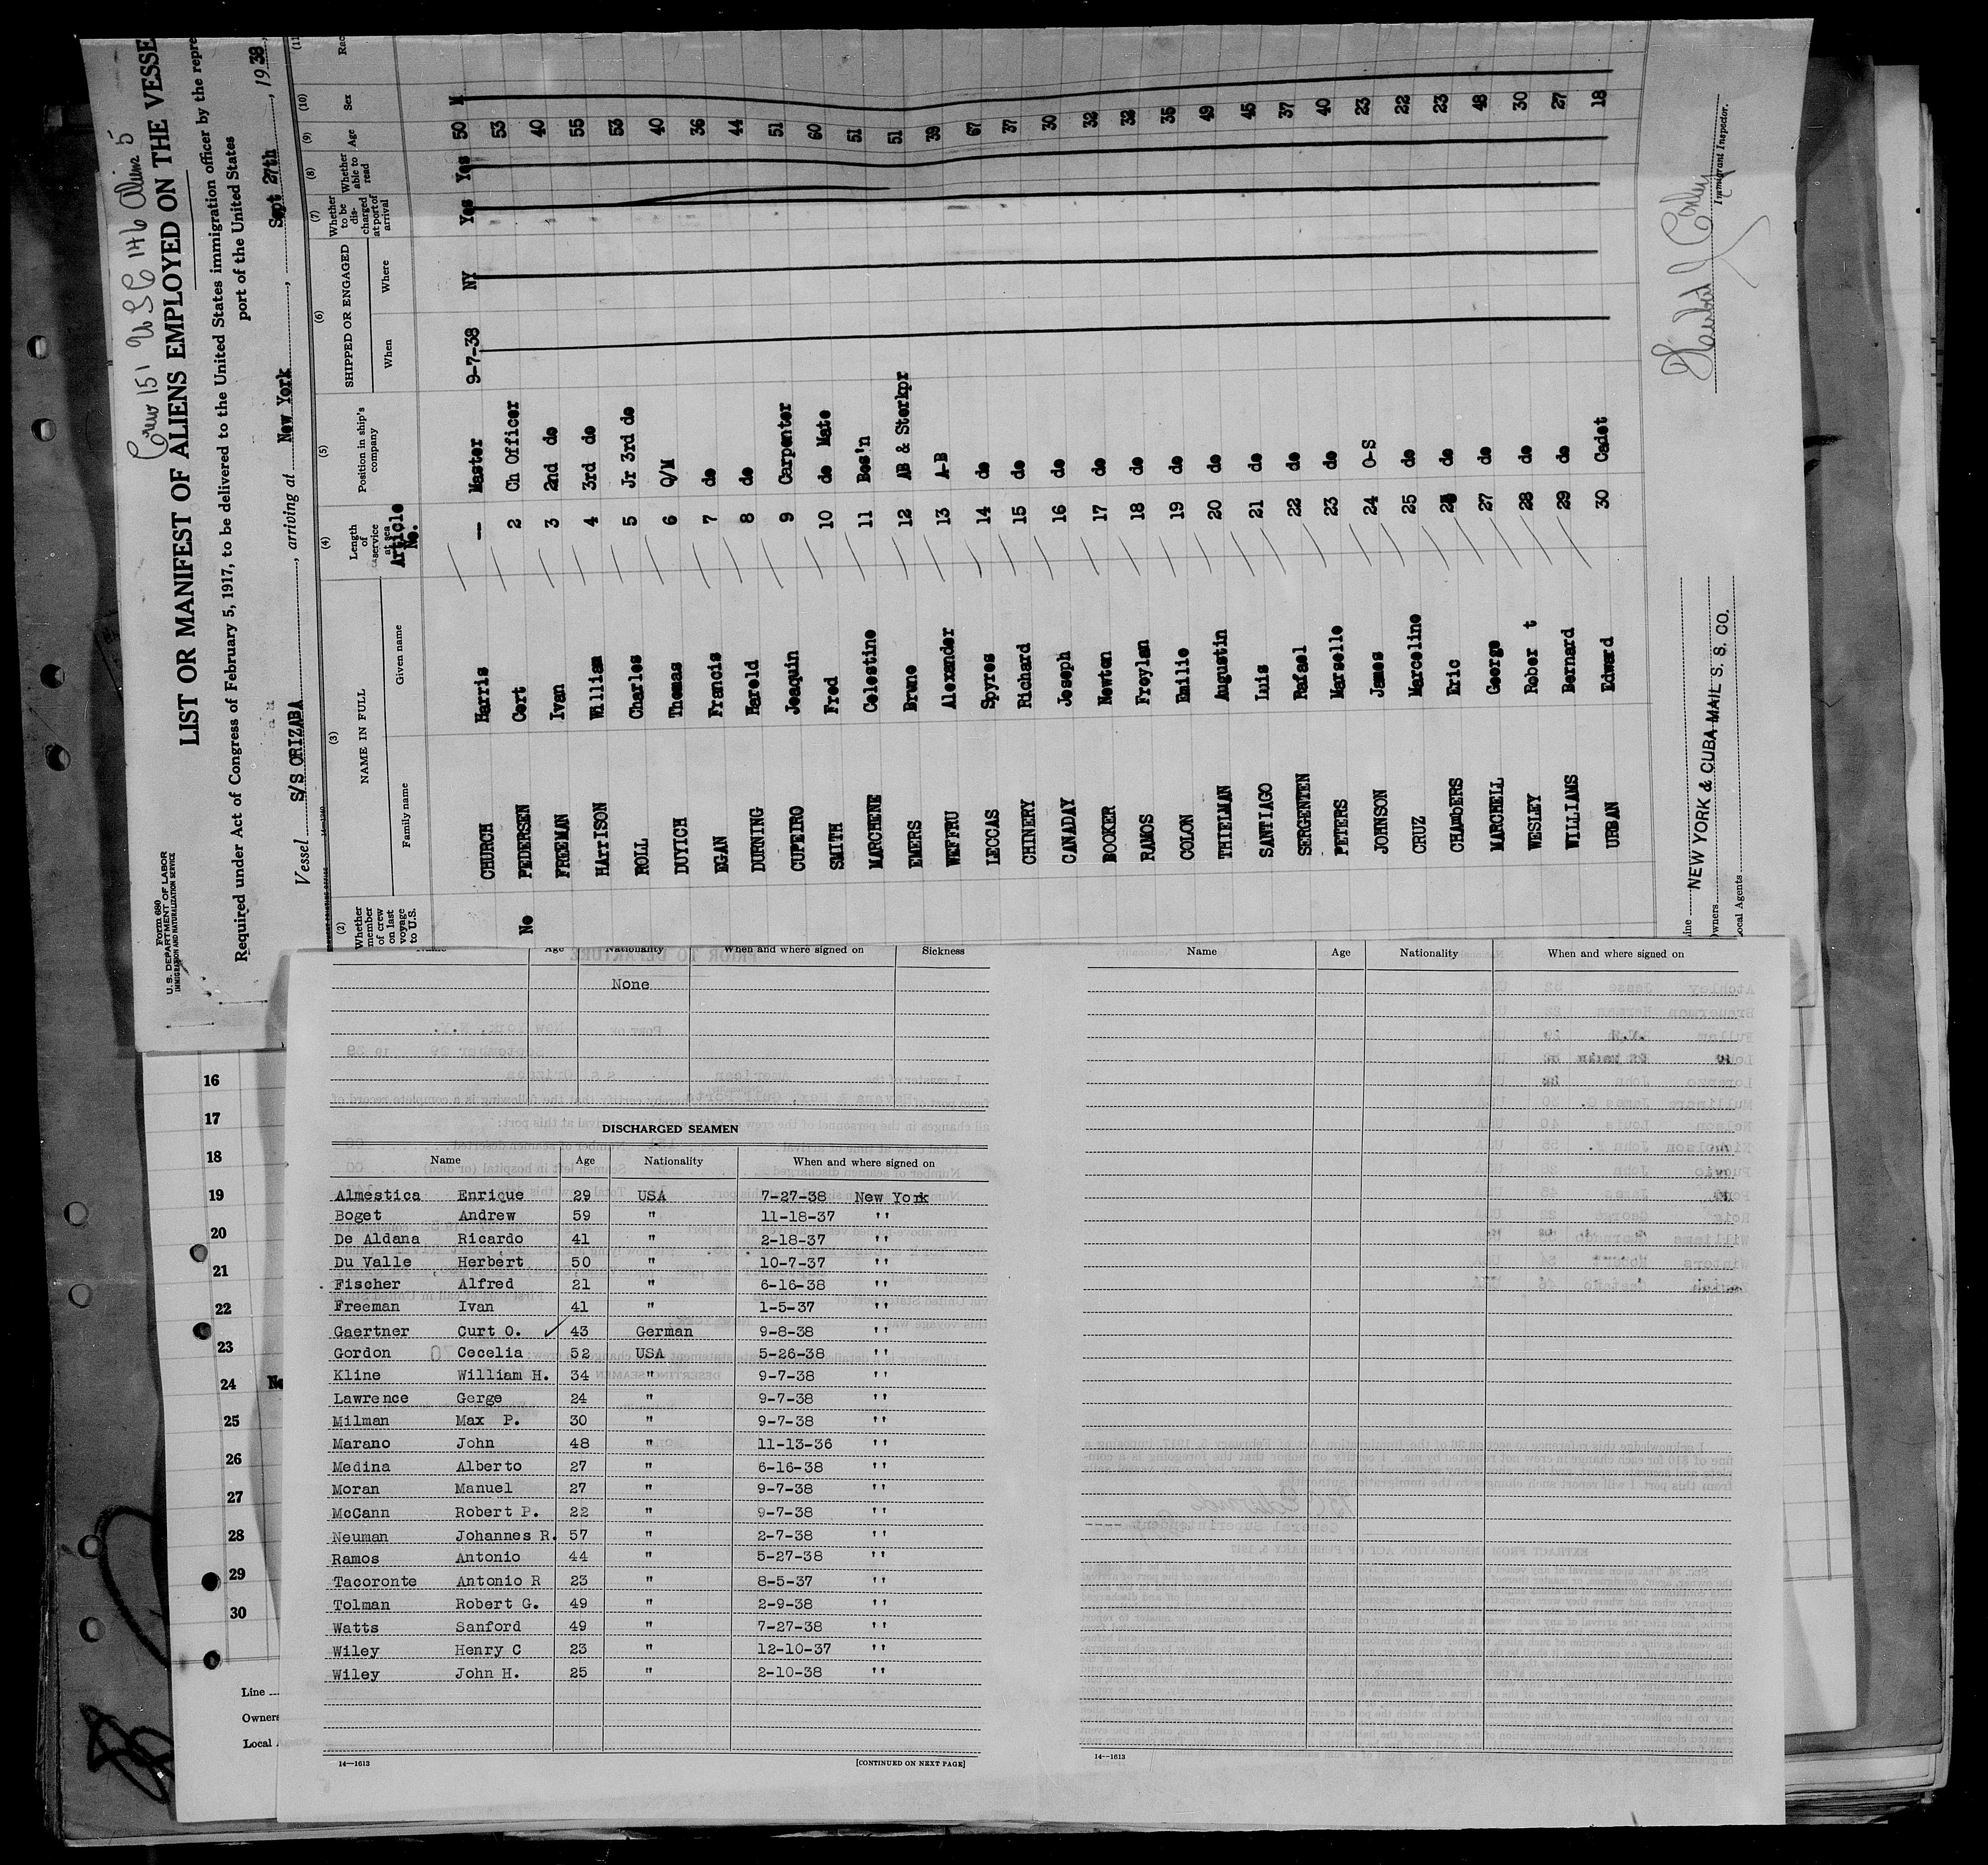 Crew 151 USC 146 Aliens 5
Form 680
U. S. DEPARTMENT OF LABOR
IMMIGRATION AND NATURALIZATION SERVICE
LIST OR MANIFEST OF ALIENS EMPLOYED ON THE VESSE
Required under Act of Congress of February 5, 1917, to be delivered to the United States immigration officer by the repre
port of the United States
Vessel S/S ORIZABA, arriving at New York, Sept 27th, 1938
(2) (3) (4) (5) (6) (7) (8) (9) (10) (11
Whether member of crew on last voyage to U.S. NAME IN FULL Length of service at sea Position in ship's company SHIPPED OR ENGAGED Whether to be discharged at port of arrival Whether able to read Age Sex Rac
Family name Given name Article No. When Where
CHURCH Harris — Master 9-7-38 NY Yes Yes 50 M
No PEDERSEN Cort 2 Ch Officer 53
FREEMAN Ivan 3 2nd do 40
HArrISON William 4 3rd do 55
ROLL Charles 5 Jr 3rd do 53
DUYICH Thomas 6 Q/M 40
EGAN Francis 7 do 36
DURNING Harold 8 do 44
CUPEIRO Joaquin 9 Carpenter 51
SMITH Fred 10 do Mate 60
MARCHENE Celestine 11 Bos'n 51
EMERS Bruno 12 AB & Storkpr 51
WEFFRU Alexander 13 A-B 39
LECCAS Spyros 14 do 67
CHINERY Richard 15 do 37
CANADAY Joseph 16 do 30
BOOKER Newton 17 do 32
RAMOS Froylan 18 do 32
COLON Emilio 19 do 35
THIELMAN Augustin 20 do 49
SANTIAGO Luis 21 do 45
SERGENTEN Rafael 22 do 37
PETERS Marselle 23 do 40
JOHNSON James 24 O-S 23
CRUZ Marceline 25 do 22
CHAMbERS Eric 26 do 23
MARCHELL George 27 do 48
WESLEY Rober t 28 do 30
WILLIAMS Bernard 29 do 27
URBAN Edward 30 Cadet 18
Line NEW YORK & CUBA MAIL S. S. CO.
Owners
Local Agents
Immigrant Inspector.
Name Age Nationality When and where signed on Sickness
None
DISCHARGED SEAMEN
Name Age Nationality When and where signed on
Almestica Enrique 29 USA 7-27-38 New York
Boget Andrew 59 " 11-18-37 ''
De Aldana Ricardo 41 " 2-18-37 ''
Du Valle Herbert 50 " 10-7-37 ''
Fischer Alfred 21 " 6-16-38 ''
Freeman Ivan 41 " 1-5-37 ''
Gaertner Curt O. ✓ 43 German 9-8-38 ''
Gordon Cecelia 52 USA 5-26-38 ''
Kline William H. 34 " 9-7-38 ''
Lawrence Gerge 24 " 9-7-38 ''
Milman Max P. 30 " 9-7-38 ''
Marano John 48 " 11-13-36 ''
Medina Alberto 27 " 6-16-38 ''
Moran Manuel 27 " 9-7-38 ''
McCann Robert P. 22 " 9-7-38 ''
Neuman Johannes R. 57 " 2-7-38 ''
Ramos Antonio 44 " 5-27-38 ''
Tacoronte Antonio R 23 " 8-5-37 ''
Tolman Robert G. 49 " 2-9-38 ''
Watts Sanford 49 " 7-27-38 ''
Wiley Henry C 23 " 12-10-37 ''
Wiley John H. 25 " 2-10-38 ''
14—1613 [CONTINUED ON NEXT PAGE]
Name Age Nationality When and where signed on
14—1613
16
17
18
19
20
21
22
23
24 No
25
26
27
28
29
30
Line
Owners
Local